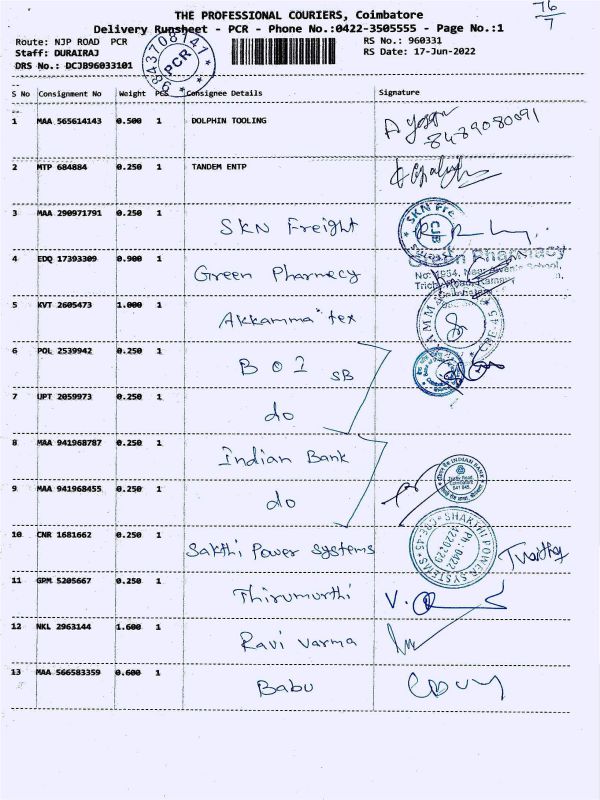 76/7
THE PROFESSIONAL COURIERS, Coimbatore
Delivery Runsheet - PCR - Phone No.:0422-3505555 - Page No.:1
Route: NJP ROAD PCR
RS No.: 960331
Staff: DURAIRAJ
RS Date: 17-Jun-2022
DRS No.: DCJB96033101
9843708141 PCR
S No Consignment No Weight PCS Consignee Details Signature
1 MAA 565614143 0.500 1 DOLPHIN TOOLING
8489080091
2 MTP 684884 0.250 1 TANDEM ENTP
3 MAA 290971791 0.250 1 SKN Freight
SKN Fre CJB
4 EDQ 17393309 0.900 1 Green Pharmecy
Green Pharmacy
5 KVT 2605473 1.000 1 Akkamma tex
CBE-45
6 POL 2539942 0.250 1 BOI SB
7 UPT 2059973 0.250 1 do
8 MAA 941968787 0.250 1 Indian Bank
INDIAN BANK
9 MAA 941968455 0.250 1 do
10 CNR 1681662 0.250 1 Sakthi Power Systems
SHAKTHI POWER SYSTEMS CBE-45 PH: 0422
11 GPM 5205667 0.250 1 Thirumurthi
12 NKL 2963144 1.600 1 Ravi varma
13 MAA 566583359 0.600 1 Babu